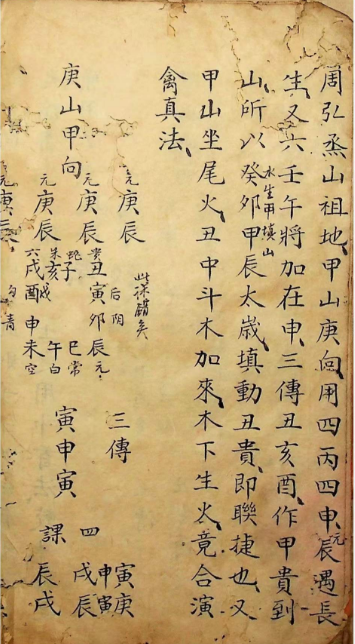 周弘烝山祖地甲山庚向用四丙四申辰遇長
元
生又六壬午將加在申三傳丑亥酉作甲貴到
山所以癸卯甲辰太歲填動丑貴即聯捷也又
水生甲填山
甲山坐尾火丑中斗木加來木下生火竟合演
禽真法
庚山甲向
元庚辰
元庚辰
元庚辰
元庚辰
后陰
貴丑寅卯辰元
蛇子 巳常
朱亥 午白
六戌酉申未空
勾青
三傳
寅申寅
四課
寅庚
申寅
戌辰
辰戌